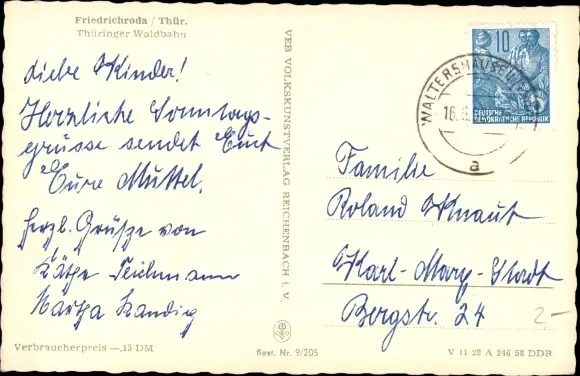 Friedrichroda / Thür.
Thüringer Waldbahn
Liebe Kinder!
Herzliche Sonntags-
grüsse sendet Euch
Eure Muttel.
herzl. Grüße von
Käthe Teichmann
Martha Kandig
Verbraucherpreis —,15 DM
VEB VOLKSKUNSTVERLAG REICHENBACH i. V.
Best. Nr. 9/205
10
DEUTSCHE
DEMOKRATISCHE REPUBLIK
WALTERSHAUSEN
16.
a
Familie
Roland Knaut
Karl-Marx-Stadt
Bergstr. 24
2-
V 11 28 A 246 58 DDR